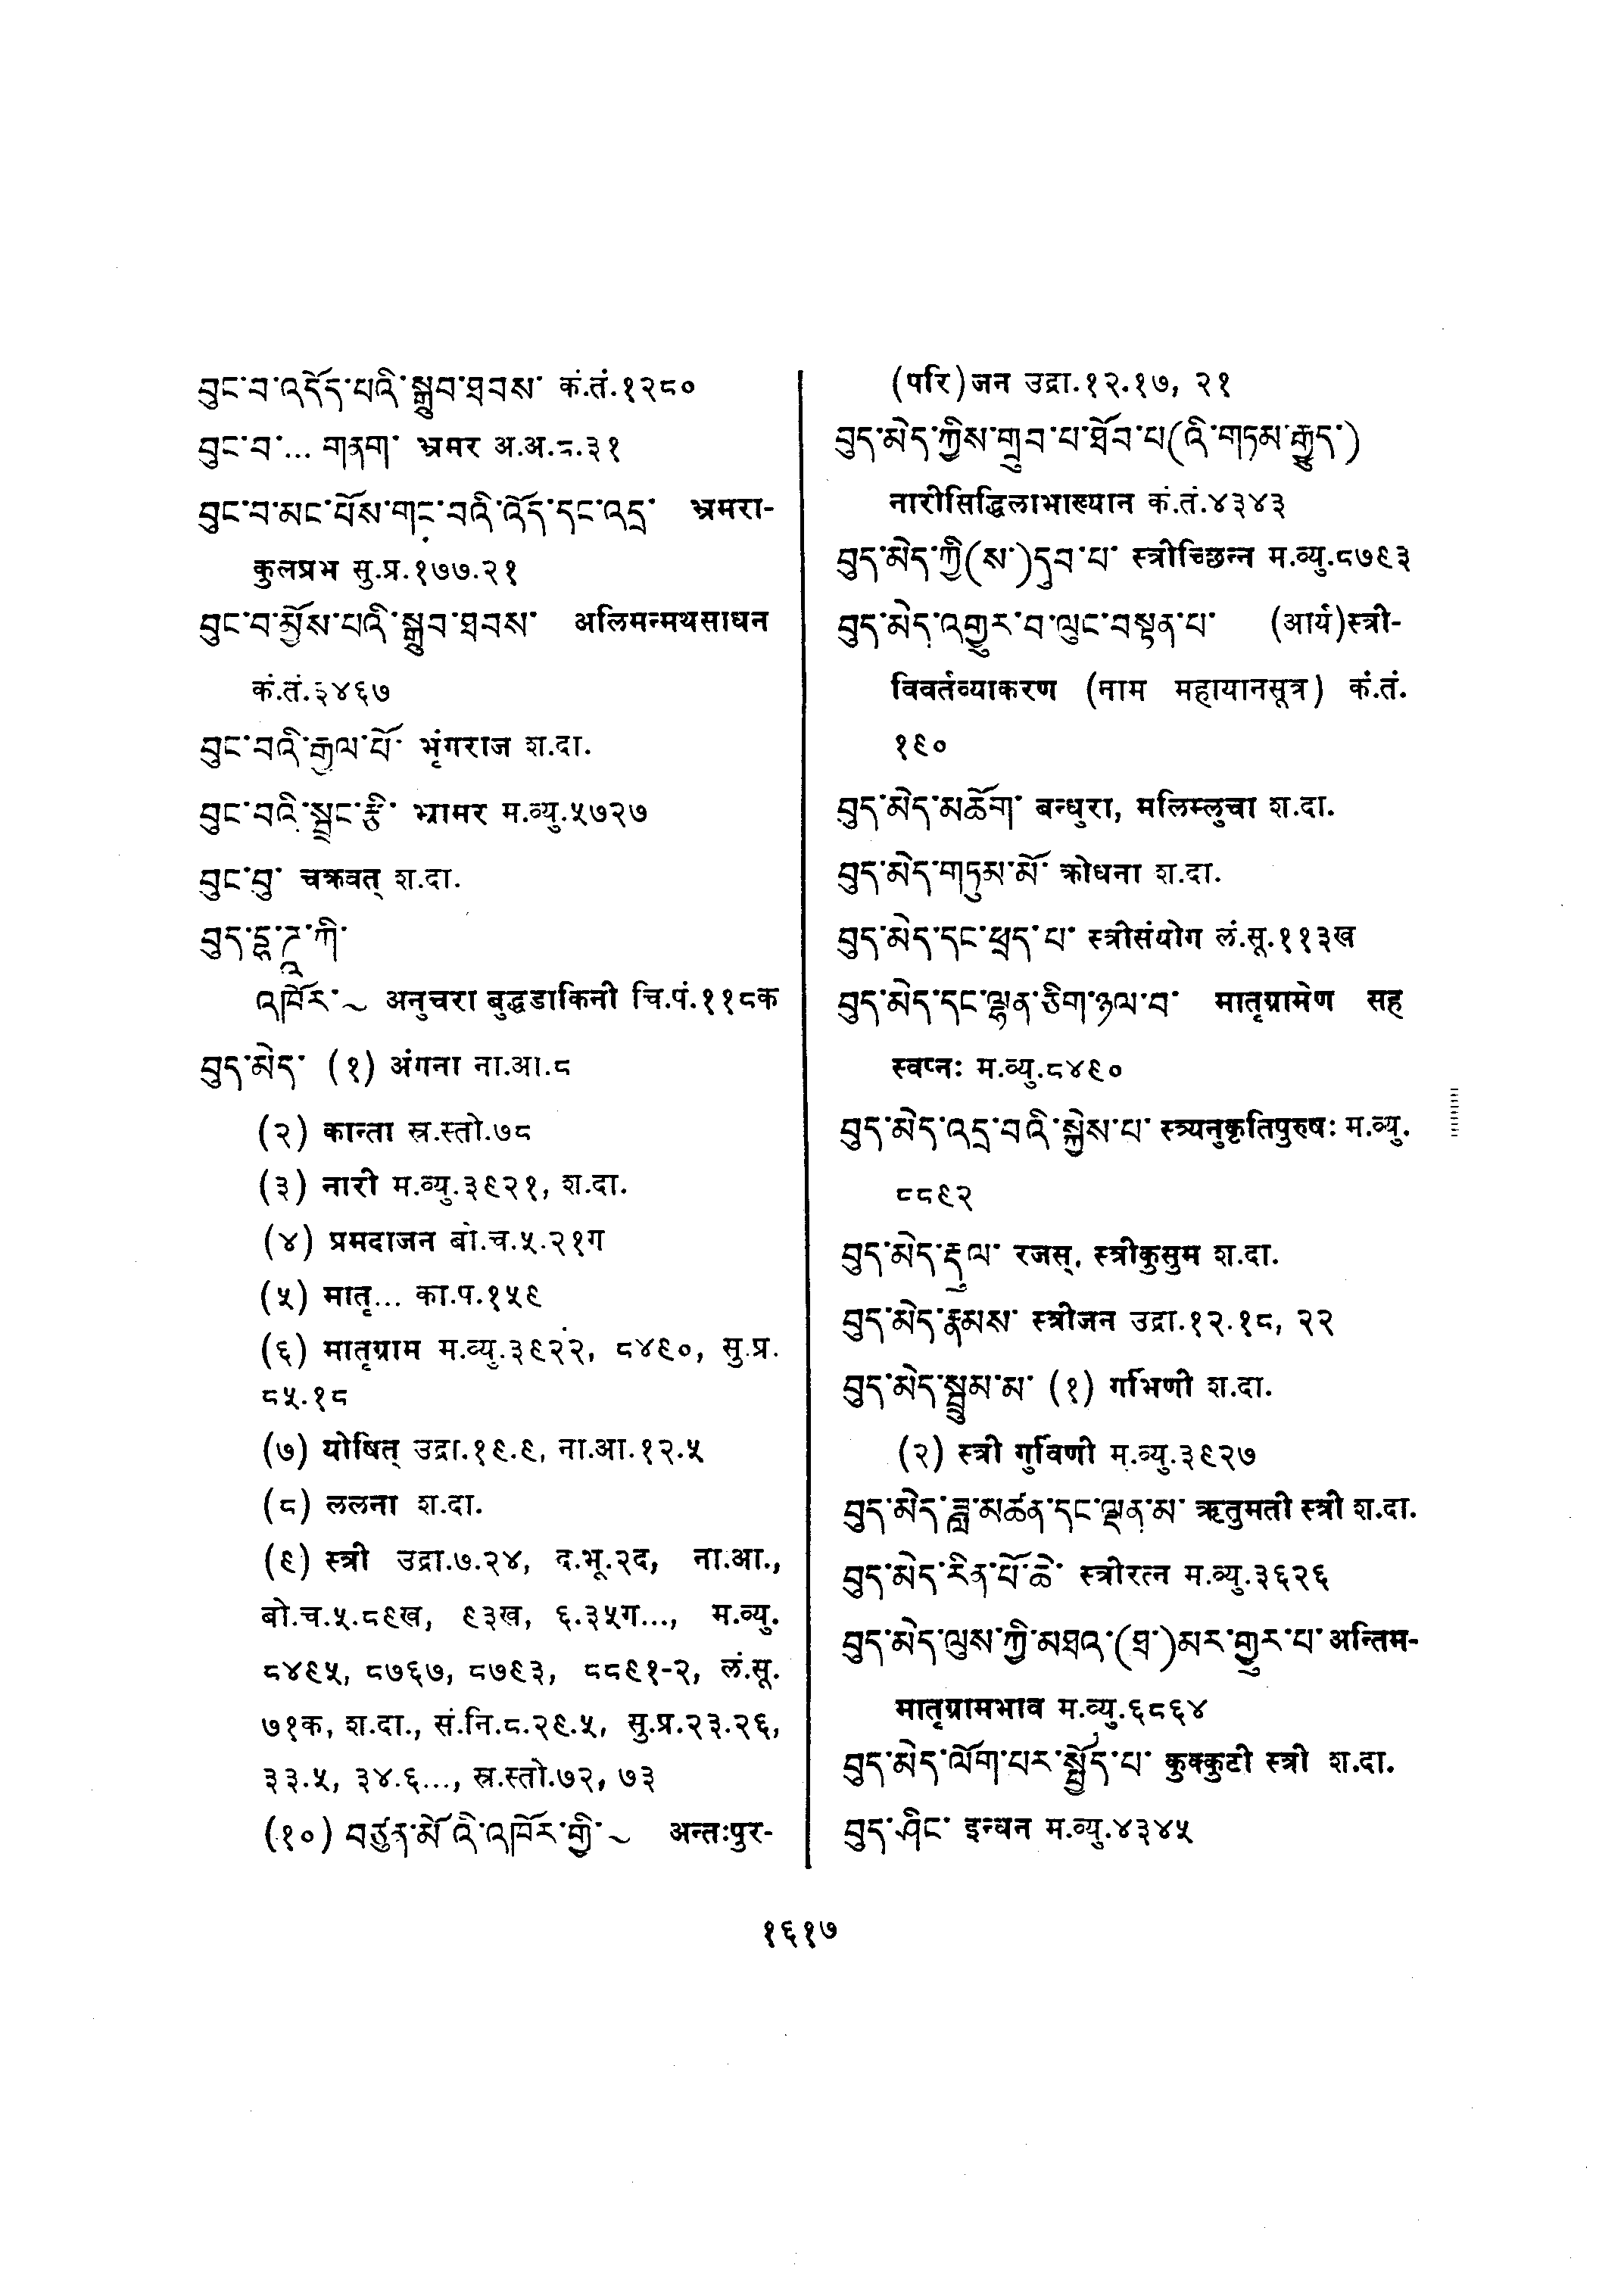 བུང་བ་འདོད་པའི་སྒྲུབ་ཐབས་ कं.तं.१२८०
བུང་བ་... གནག་ भ्रमर अ.अ.८.३१
བུང་བ་མང་པོས་གང་བའི་འོད་དང་འདྲ་ भ्रमरा-
कुलप्रभ सु.प्र.१७७.२१
བུང་བ་མྱོས་པའི་སྒྲུབ་ཐབས་ अलिमन्मथसाधन
कं.तं.३४६७
བུང་བའི་རྒྱལ་པོ་ भृंगराज श.दा.
བུང་བའི་སྦྲང་རྩི་ भ्रामर म.व्यु.५७२७
བུང་བུ་ चक्रवत् श.दा.
བུད་དྷ་ཌཱ་ཀི་
འཁོར་~ अनुचरा बुद्धडाकिनी चि.पं.११८क
བུད་མེད་ (१) अंगना ना.आ.८
(२) कान्ता स्र.स्तो.७८
(३) नारी म.व्यु.३९२१, श.दा.
(४) प्रमदाजन बो.च.५.२१ग
(५) मातृ... का.प.१५९
(६) मातृग्राम म.व्यु.३९२२, ८४९०, सु.प्र.
८५.१८
(७) योषित् उद्रा.१९.९, ना.आ.१२.५
(८) ललना श.दा.
(९) स्त्री उद्रा.७.२४, द.भू.२द, ना.आ.,
बो.च.५.८९ख, ९३ख, ६.३५ग..., म.व्यु.
८४९५, ८७६७, ८७९३, ८८९१-२, लं.सू.
७१क, श.दा., सं.नि.८.२९.५, सु.प्र.२३.२६,
३३.५, ३४.६..., स्र.स्तो.७२, ७३
(१०) བཙུན་མོ་འི་འཁོར་གྱི་~ अन्तःपुर-
(परि)जन उद्रा.१२.१७, २१
བུད་མེད་ཀྱིས་གྲུབ་པ་ཐོབ་པ(འི་གཏམ་རྒྱུད་)
नारीसिद्धिलाभाख्यान कं.तं.४३४३
བུད་མེད་ཀྱི(ས་)དུབ་པ་ स्त्रीच्छिन्न म.व्यु.८७९३
བུད་མེད་འགྱུར་བ་ལུང་བསྟན་པ་ (आर्य)स्त्री-
विवर्तव्याकरण (नाम महायानसूत्र) कं.तं.
१९०
བུད་མེད་མཆོག་ बन्धुरा, मलिम्लुचा श.दा.
བུད་མེད་གཏུམ་མོ་ क्रोधना श.दा.
བུད་མེད་དང་ཕྲད་པ་ स्त्रीसंयोग लं.सू.११३ख
བུད་མེད་དང་ལྷན་ཅིག་ཉལ་བ་ मातृग्रामेण सह
स्वप्नः म.व्यु.८४९०
བུད་མེད་འདྲ་བའི་སྐྱེས་པ་ स्त्र्यनुकृतिपुरुषः म.व्यु.
८८९२
བུད་མེད་རྡུལ་ रजस्, स्त्रीकुसुम श.दा.
བུད་མེད་རྣམས་ स्त्रीजन उद्रा.१२.१८, २२
བུད་མེད་སྦྲུམ་མ་ (१) गर्भिणी श.दा.
(२) स्त्री गुर्विणी म.व्यु.३९२७
བུད་མེད་ཟླ་མཚན་དང་ལྡན་མ་ ऋतुमती स्त्री श.दा.
བུད་མེད་རིན་པོ་ཆེ་ स्त्रीरत्न म.व्यु.३६२६
བུད་མེད་ལུས་ཀྱི་མཐའ་(ཐ་)མར་གྱུར་པ་ अन्तिम-
मातृग्रामभाव म.व्यु.६८६४
བུད་མེད་ལོག་པར་སྤྱོད་པ་ कुक्कुटी स्त्री श.दा.
བུད་ཤིང་ इन्धन म.व्यु.४३४५
१६१७